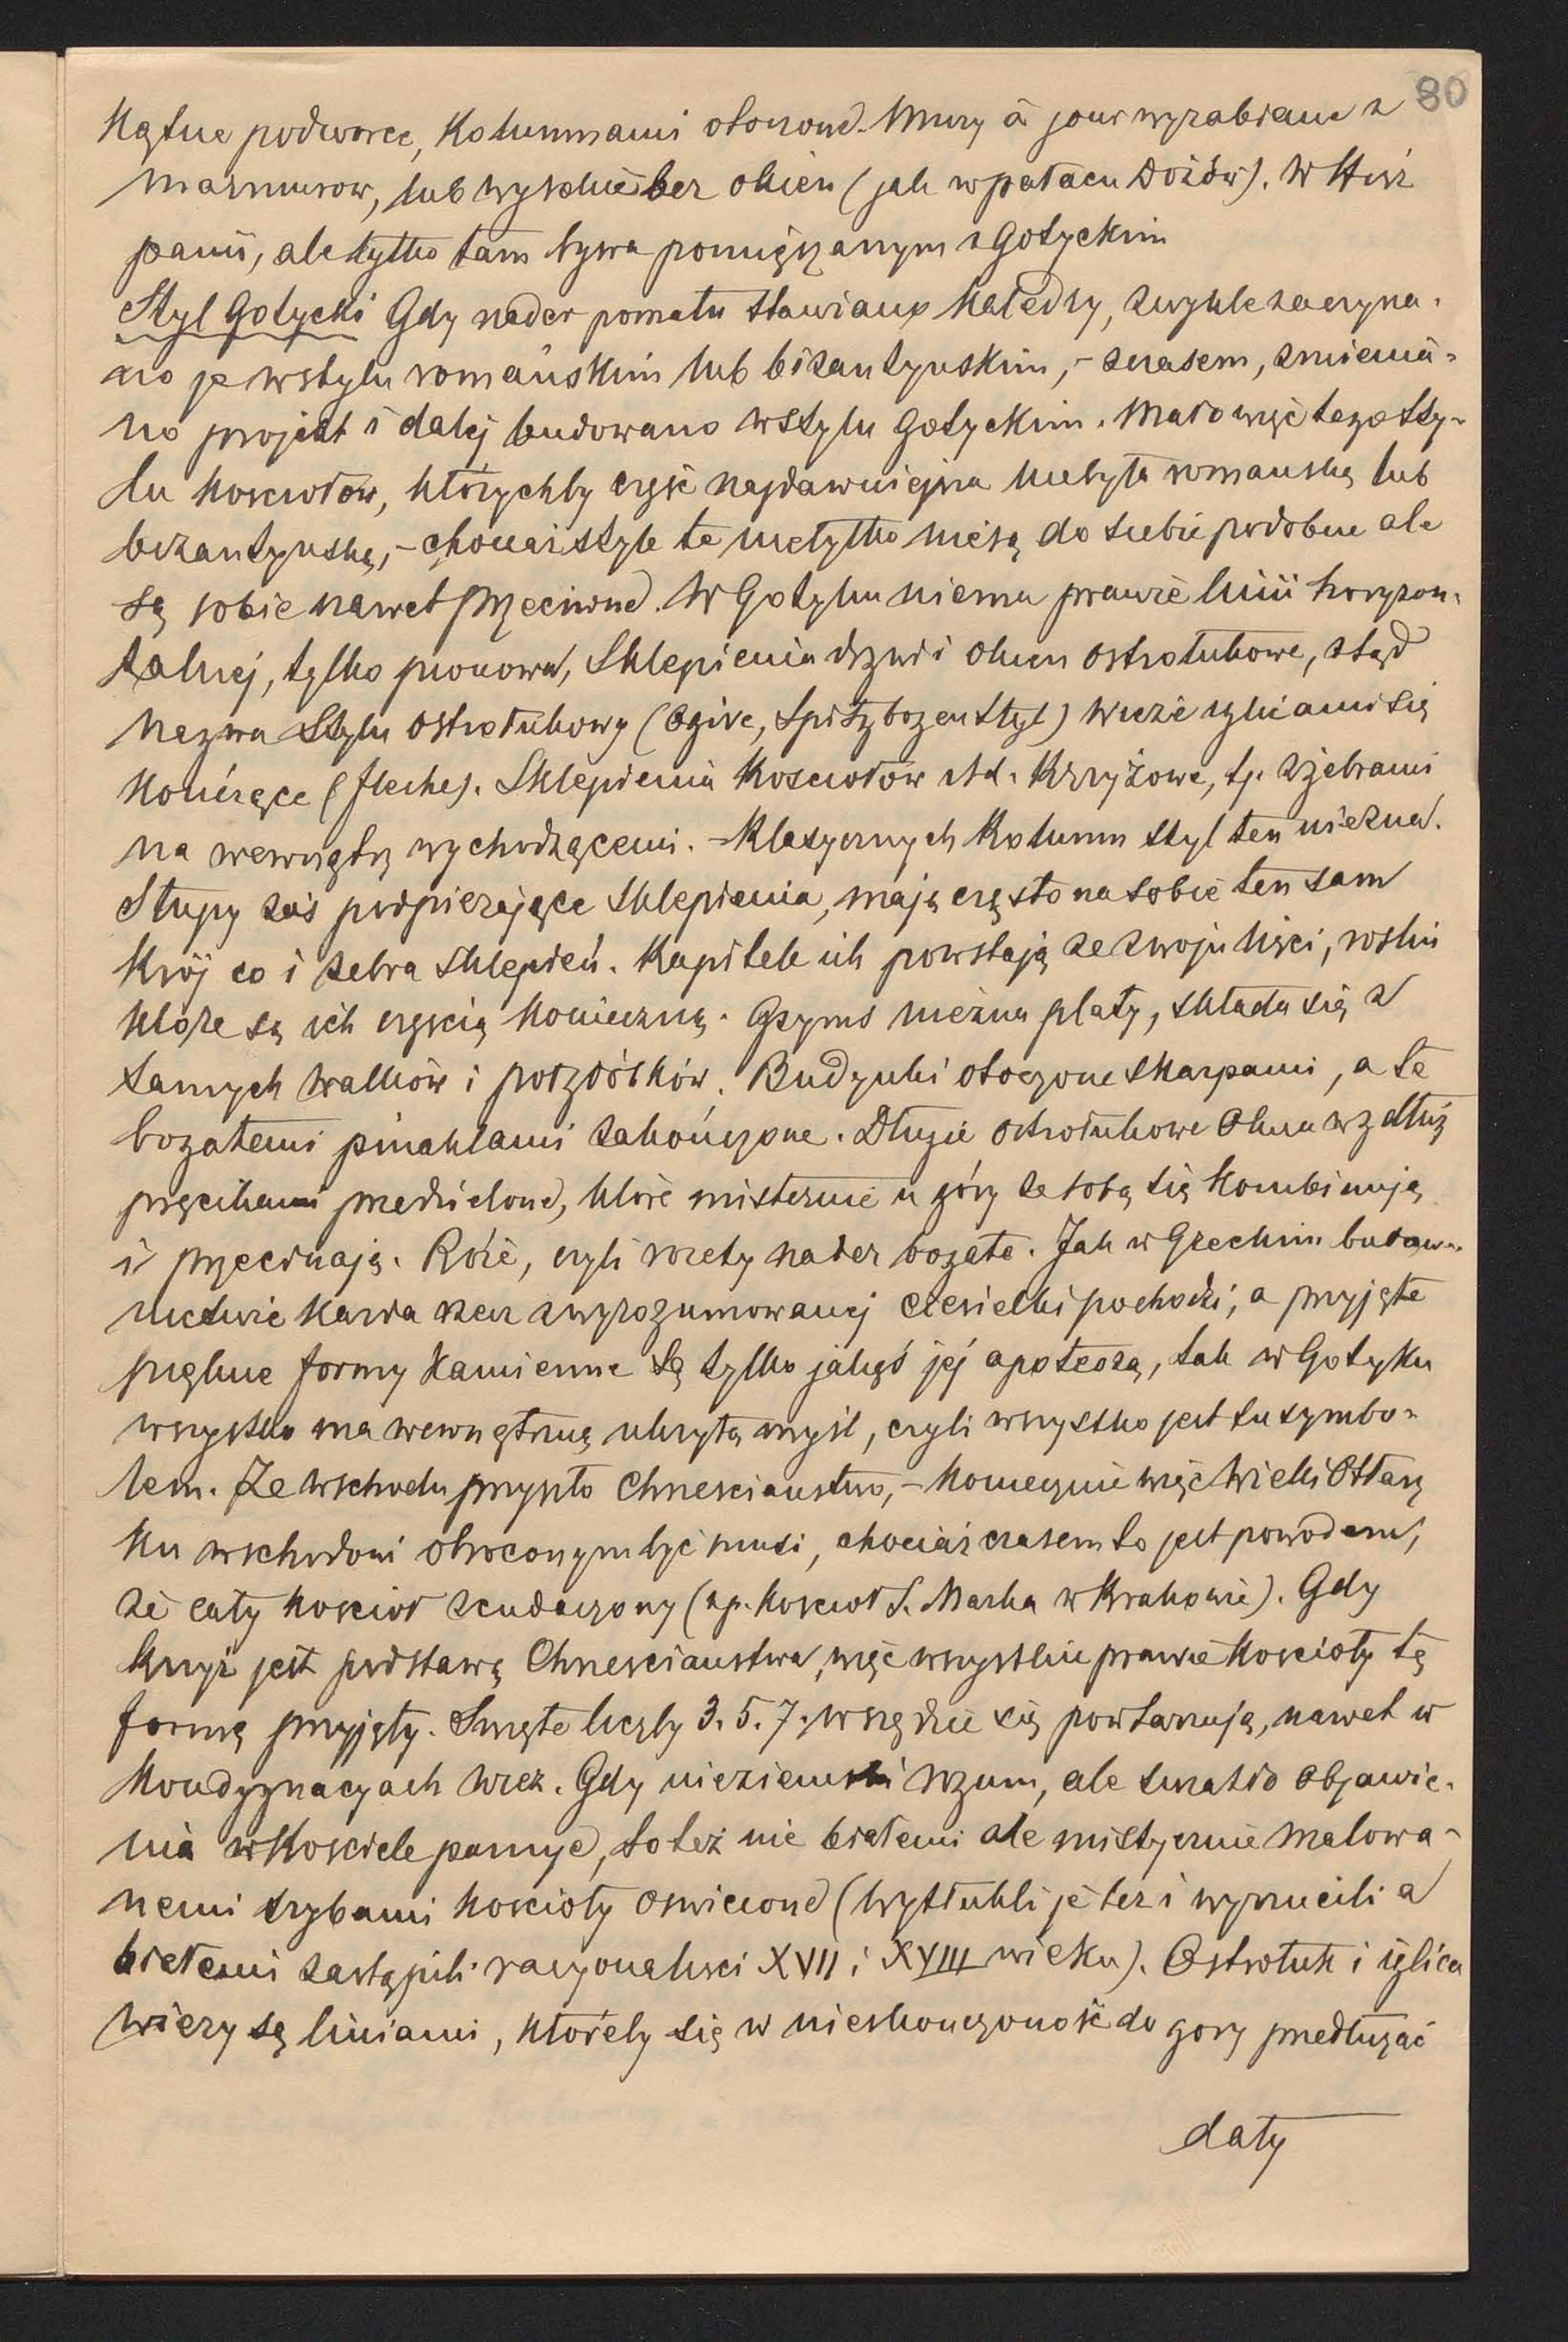 80
kątne podworce, kolumnami otoczone. Mury à jour wyrabiane z
marmurow, lub wysokie bez okien (jak w pałacu Dożów). W Hisz
panii, ale tylko tam bywa pomięszanym z Gotyckim
Styl Gotycki Gdy nader pomału stawiano Katedry, zwykle zaczyna-
no je w stylu romańskim lub bizantyńskim, - z czasem, zmienia-
no projekt i dalej budowano w stylu Gotyckim. Mało więc tego sty-
lu kosciołów, którychby część najdawniejsza niebyła romańską lub
bizantyńską, - chociaż style te nietylko niesą do siebie podobne ale
są sobie nawet przeciwne. W Gotyku niema prawie linii horyzon-
talnej, tylko pionowa, Sklepienia drzwi i okien ostrołukowe, stąd
nazwa Stylu ostrołukowy (Ogive, Spitzbogen Styl) Wieże iglicami się
kończące (fleche). Sklepienia kosciołów itd. Krzyżowe, tj. z żebrami
na wewnątrz wychodzącemi. - Klasycznych kolumn styl ten niezna.
Słupy zaś podpierające sklepienia, mają często na sobie ten sam
krój co i żebra sklepień. Kapitele ich powstają ze zwoju liści, roslin
które są ich częscią konieczną. Gzyms niezna płaty, składa się z
samych wałków i pożłóbków. Budynki otoczone skarpami, a te
bogatemi pinaklami zakończone. Długie, ostrołukowe Okna wzdłuż
pręcikami przedzielone, które misternie u góry ze sobą się kombinują
i przecinają. Róże, czyli rozety nader bogate. Jak w Greckim budow-
nictwie każda rzecz z wyrozumowanej ciesielki pochodzi, a przyjęte
piękne formy kamienne są tylko jakąś jej apoteozą, tak w Gotyku
wszystko ma wewnętrzną ukrytą myśl, czyli wszystko jest tu symbo-
lem. Ze wschodu przyszło Chrzescianstwo, - koniecznie więc Wielki Ołtarz
ku wschodowi obroconym być musi, chociaż czasem to jest powodem,
że cały kosciół szkudaczony (np. kosciół S. Marka w Krakowie). Gdy
krzyż jest podstawą Chrzescianstwa, więc wszystkie prawie koscioły tę
formę przyjęły. Święte liczby 3. 5. 7. wszędzie się powtarzają, nawet w
kondygnacyach wież. Gdy nieziemski rozum, ale światło Objawie-
nia w Kosciele panuje, to też nie białemi ale mistycznie malowa-
nemi szybami koscioły oswiecone (Wytłukli je też i wyrzucili a
białemi zastąpili racyonalisci XVII i XVIII wieku). Ostrołuk i iglica
wieży są liniami, któreby się w nieskonczoność do gory przedłużać
dały